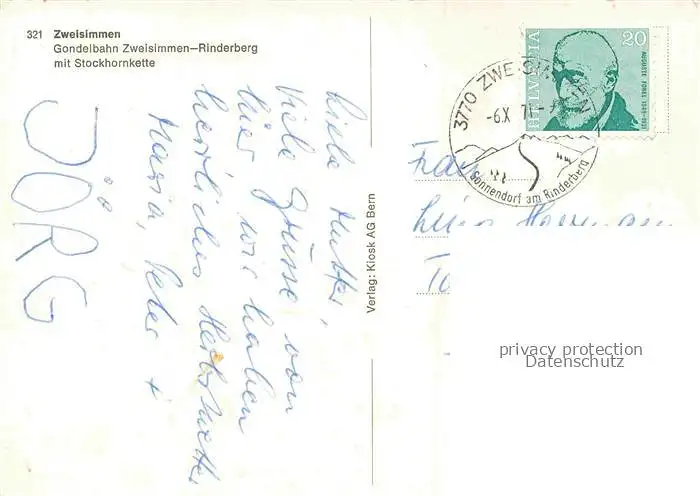 321 Zweisimmen
Gondelbahn Zweisimmen—Rinderberg
mit Stockhornkette
Liebe Mutter,
Viele Grüsse von
hier wir haben
herrliches Herbstwetter
Maria, Peter +
JÖRG
Verlag: Kiosk AG Bern
HELVETIA
20
AUGUSTE FOREL 1848-1931
3770 ZWEISIMMEN
-6.X 71-
Sonnendorf am Rinderberg
Frau
Lina
privacy protection
Datenschutz